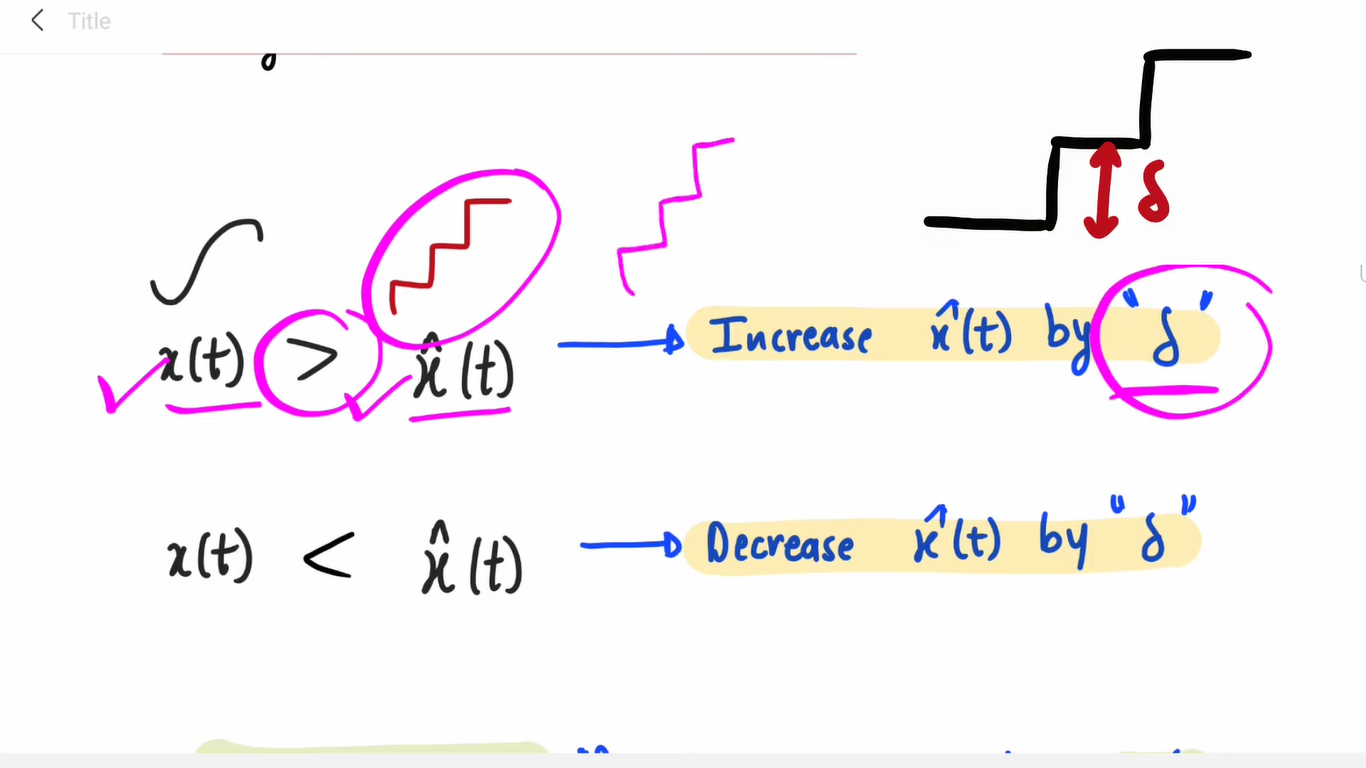 Title
δ
x(t) > x̂(t) → Increase x̂(t) by "δ"
x(t) < x̂(t) → Decrease x̂(t) by "δ"